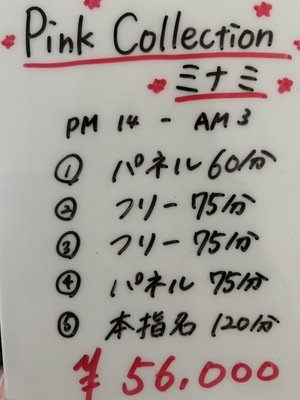 Pink Collection
ミナミ
PM 14 - AM 3
① パネル 60分
② フリー 75分
③ フリー 75分
④ パネル 75分
⑤ 本指名 120分
¥ 56,000